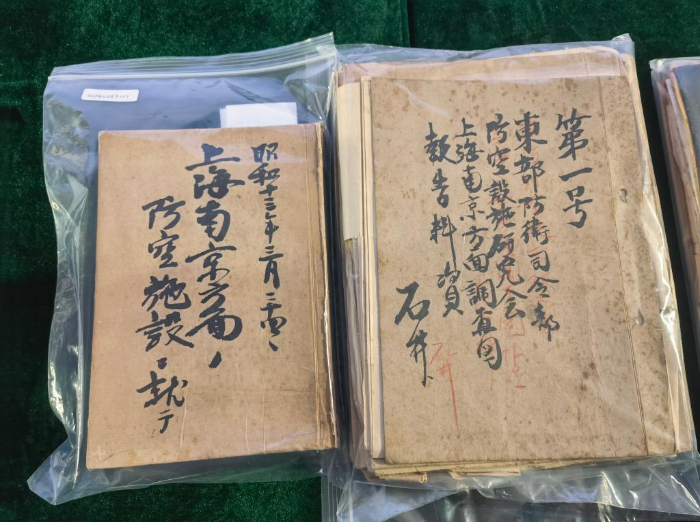 昭和十三年三月
上海南京方面ノ
防空施設ニ就テ
第一号
東部防衛司令部
防空設施研究会
上海南京方面調査団
報告料
石井
石井